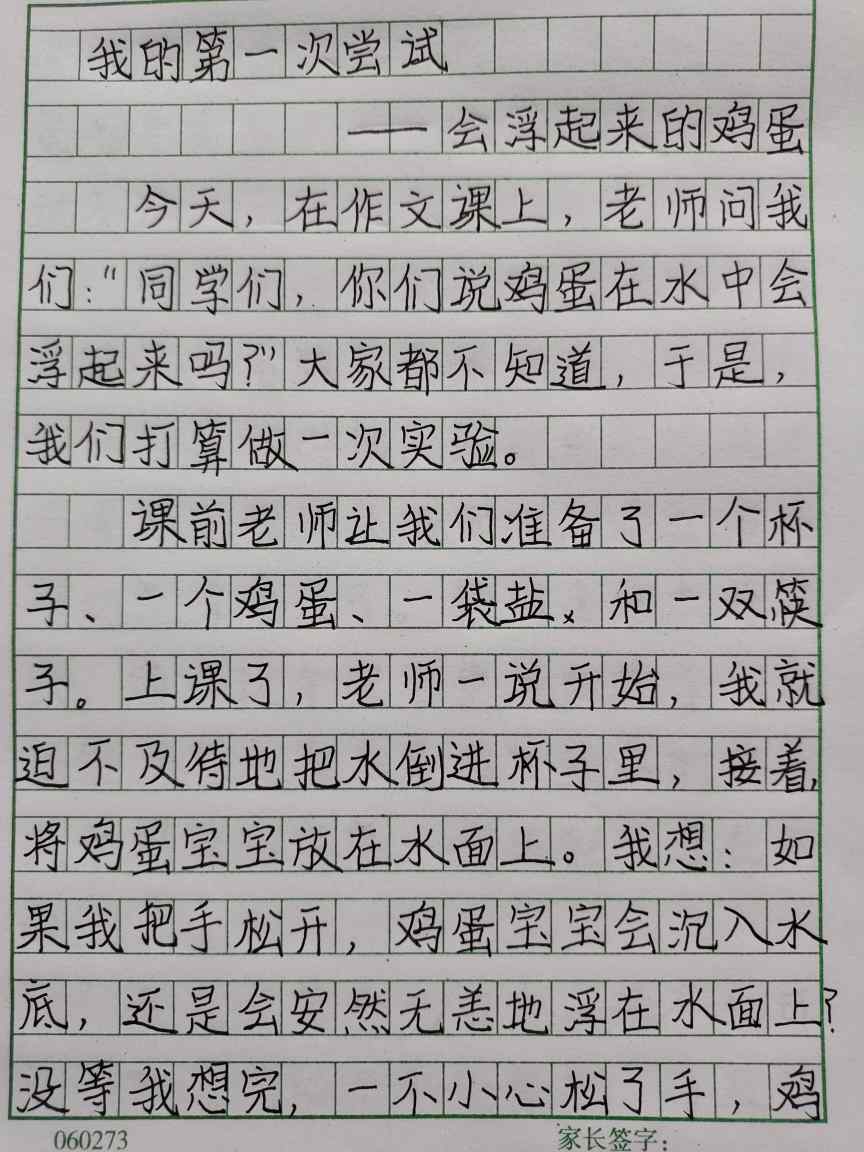 我的第一次尝试
——会浮起来的鸡蛋
今天，在作文课上，老师问我
们：“同学们，你们说鸡蛋在水中会
浮起来吗？”大家都不知道，于是，
我们打算做一次实验。
课前老师让我们准备了一个杯
子、一个鸡蛋、一袋盐、和一双筷
子。上课了，老师一说开始，我就
迫不及待地把水倒进杯子里，接着，
将鸡蛋宝宝放在水面上。我想：如
果我把手松开，鸡蛋宝宝会沉入水
底，还是会安然无恙地浮在水面上？
没等我想完，一不小心松了手，鸡
060273 家长签字：